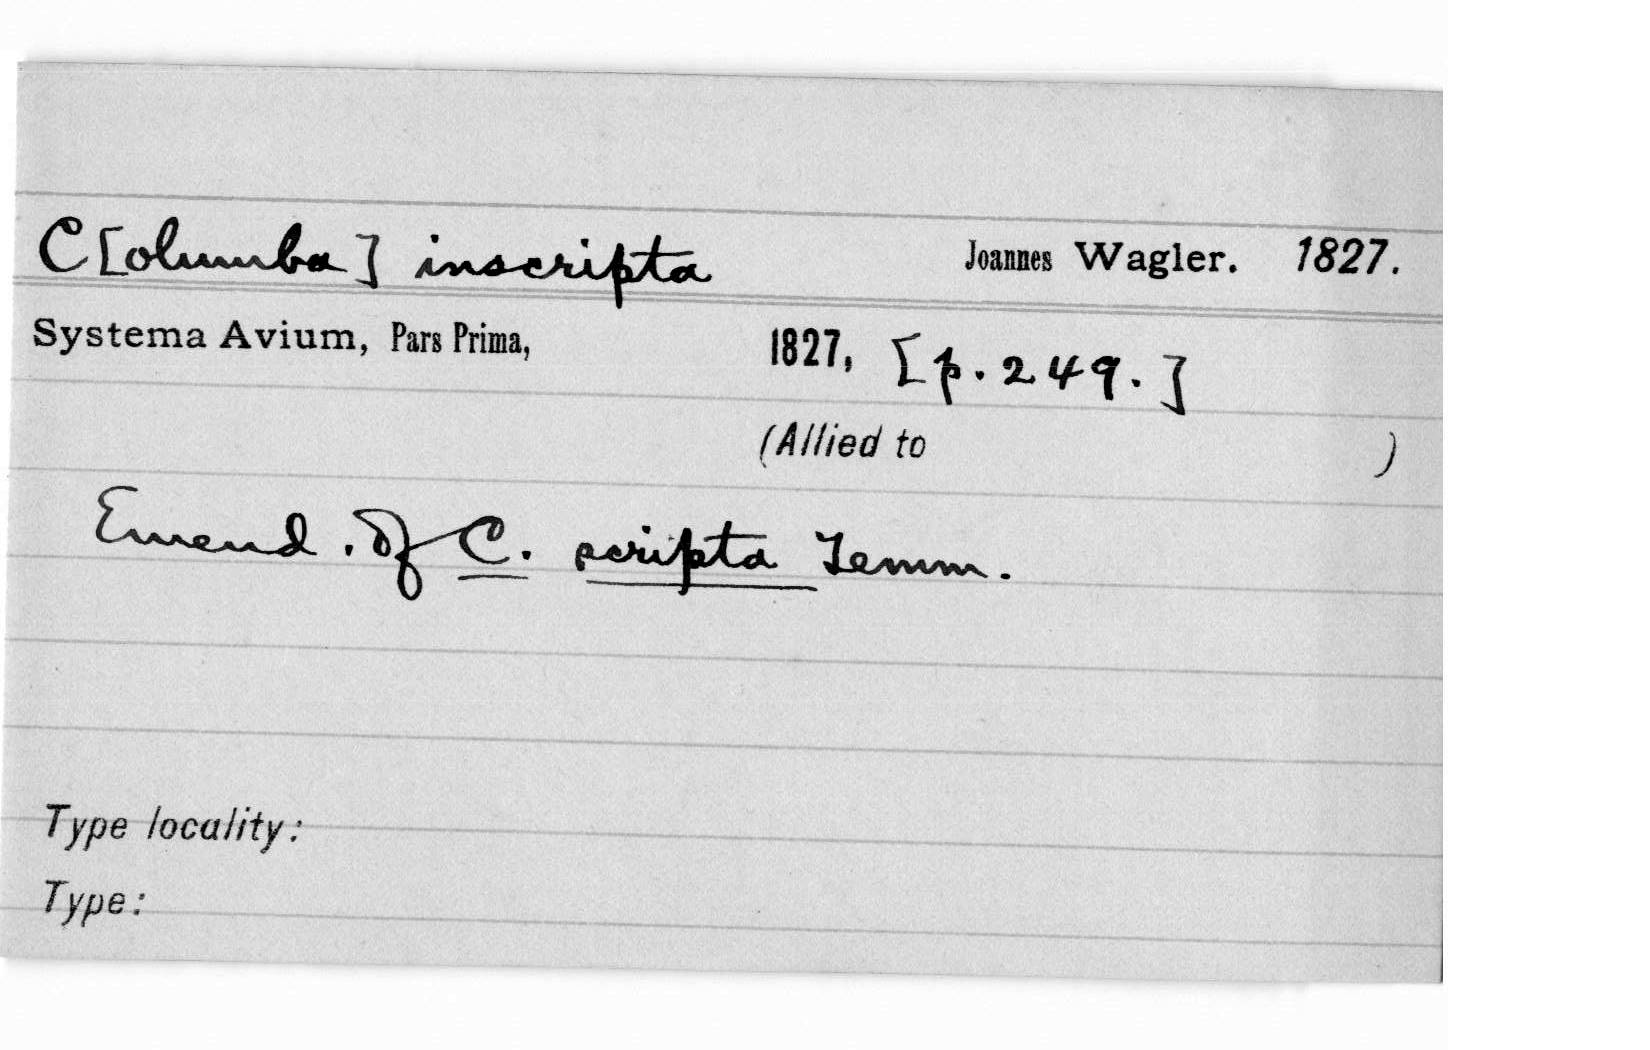 C[olumba] inscripta Joannes Wagler. 1827.
Systema Avium, Pars Prima, 1827, [p. 249.]
(Allied to )
Emend. of C. scripta Temm.
Type locality:
Type: